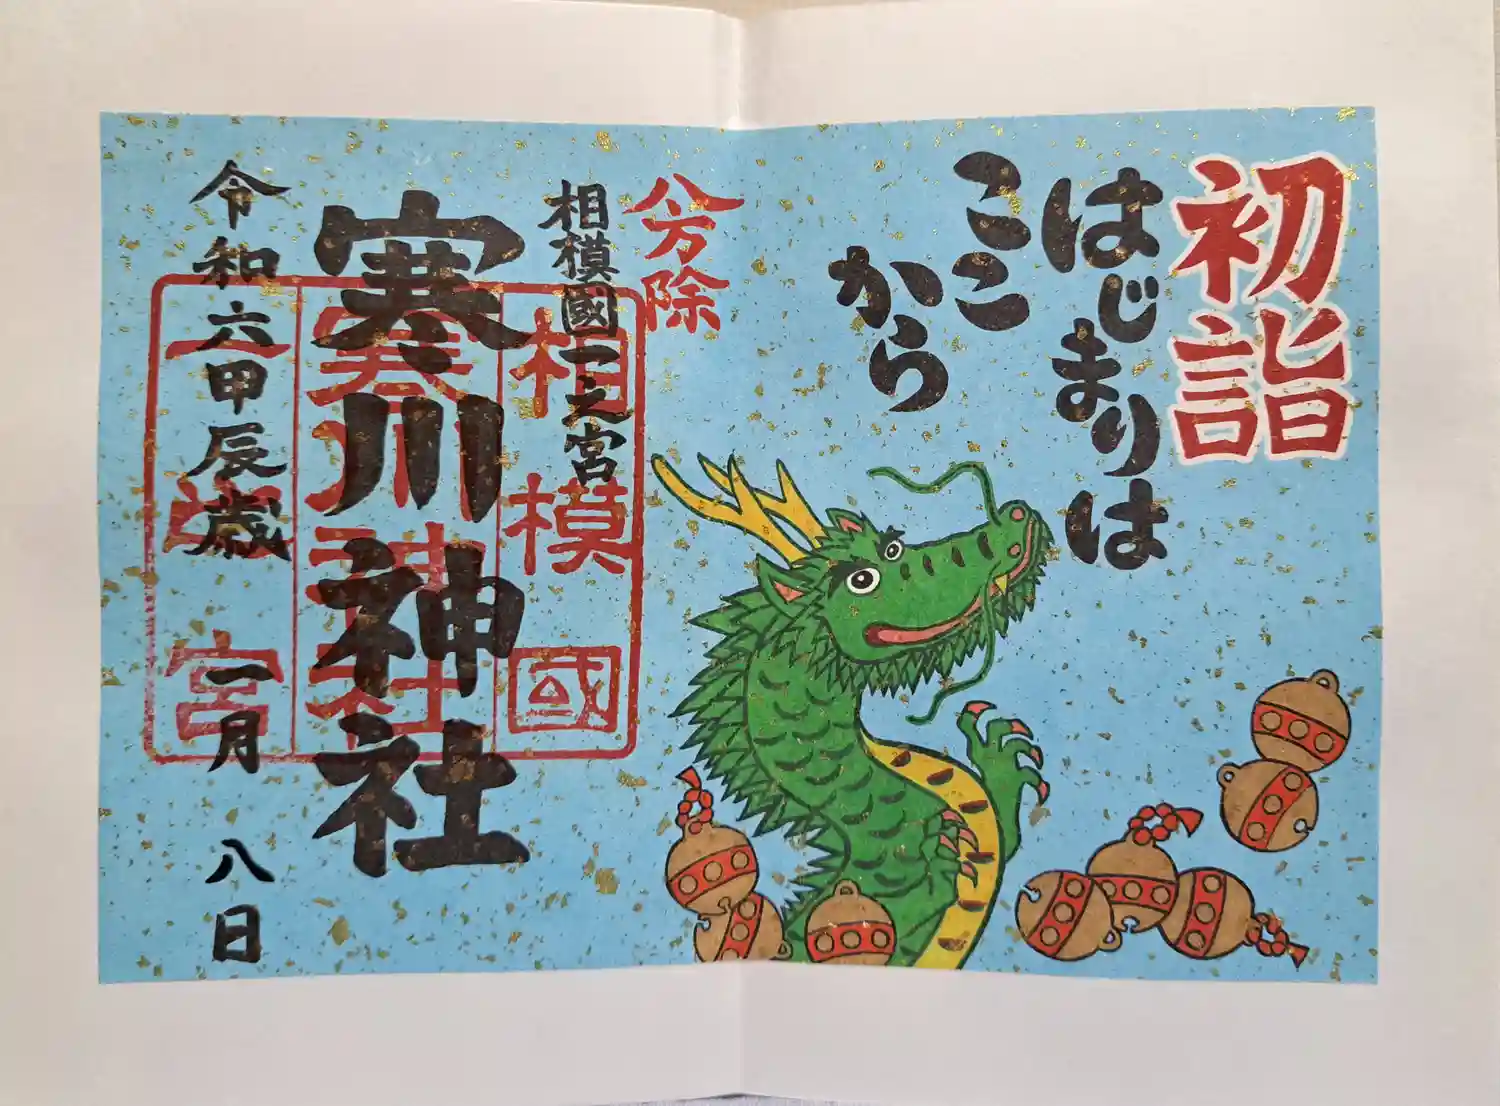 初詣
はじまりは
ここ
から
八方除
相模國一之宮
寒川神社
令和六甲辰歳一月八日
相模國
寒川神社
一之宮